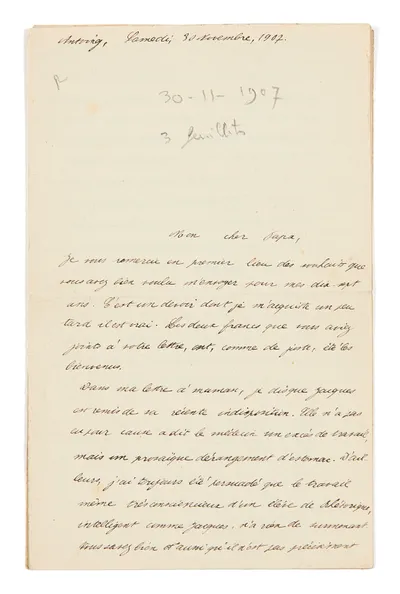 Antoing, Samedi, 30 Novembre, 1907.
30-11-1907
3 feuillets
Mon cher Papa,
Je vous remercie en premier lieu des souhaits que
vous avez bien voulu m'envoyer pour mes dix sept
ans. C'est un devoir dont je m'acquitte un peu
tard il est vrai. Les deux francs que vous avez
joints à votre lettre, ont, comme de juste, été les
bienvenus.
Dans ma lettre à maman, je dis que Jacques
est remis de sa récente indisposition. Elle n'a pas
eu pour cause a dit le médecin un excès de travail,
mais un prosaïque dérangement d'estomac. D'ail-
leurs, j'ai toujours été persuadé que le travail
même très consciencieux d'un élève de Rhétorique,
intelligent comme Jacques, n'a rien de surmenant
Vous savez bien d'aussi qu'il n'est pas précisément